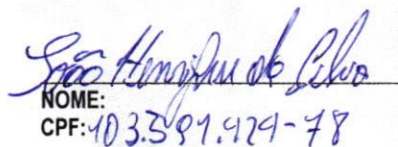 João Henrique da Silva
NOME:
CPF: 103.591.424-78